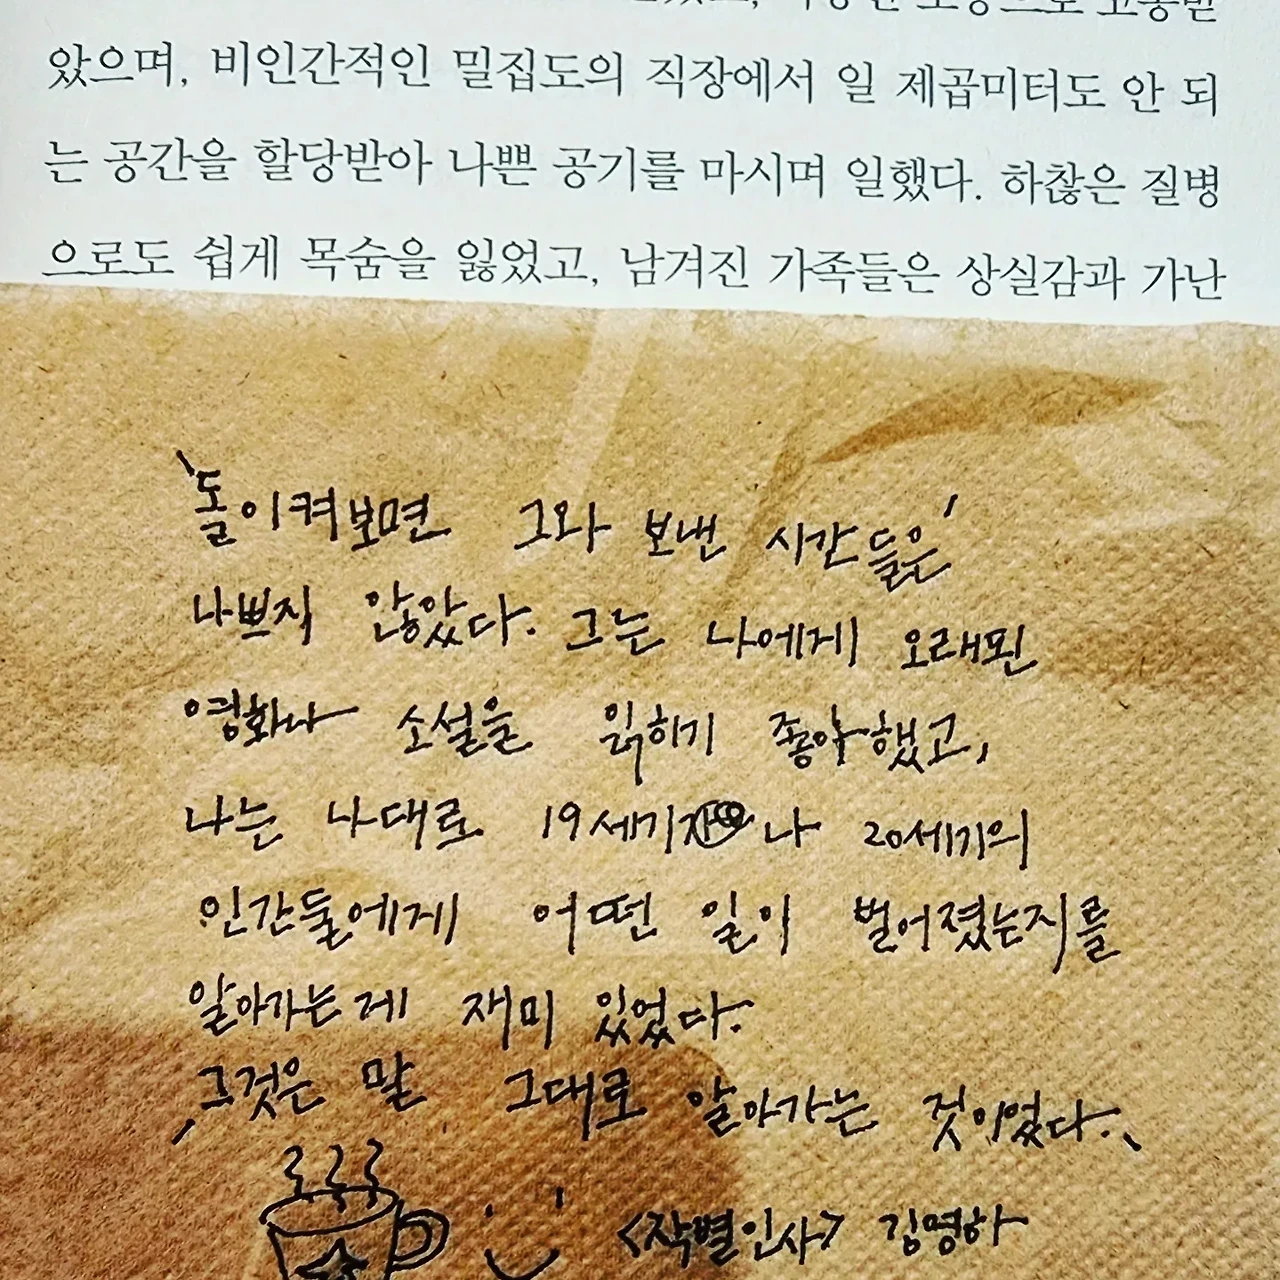 았으며, 비인간적인 밀집도의 직장에서 일 제곱미터도 안 되
는 공간을 할당받아 나쁜 공기를 마시며 일했다. 하찮은 질병
으로도 쉽게 목숨을 잃었고, 남겨진 가족들은 상실감과 가난
돌이켜보면 그와 보낸 시간들은
나쁘지 않았다. 그는 나에게 오래된
영화나 소설을 읽히기 좋아했고,
나는 나대로 19세기 나 20세기의
인간들에게 어떤 일이 벌어졌는지를
알아가는게 재미 있었다.
그것은 말 그대로 알아가는 것이었다.
<작별인사> 김영하